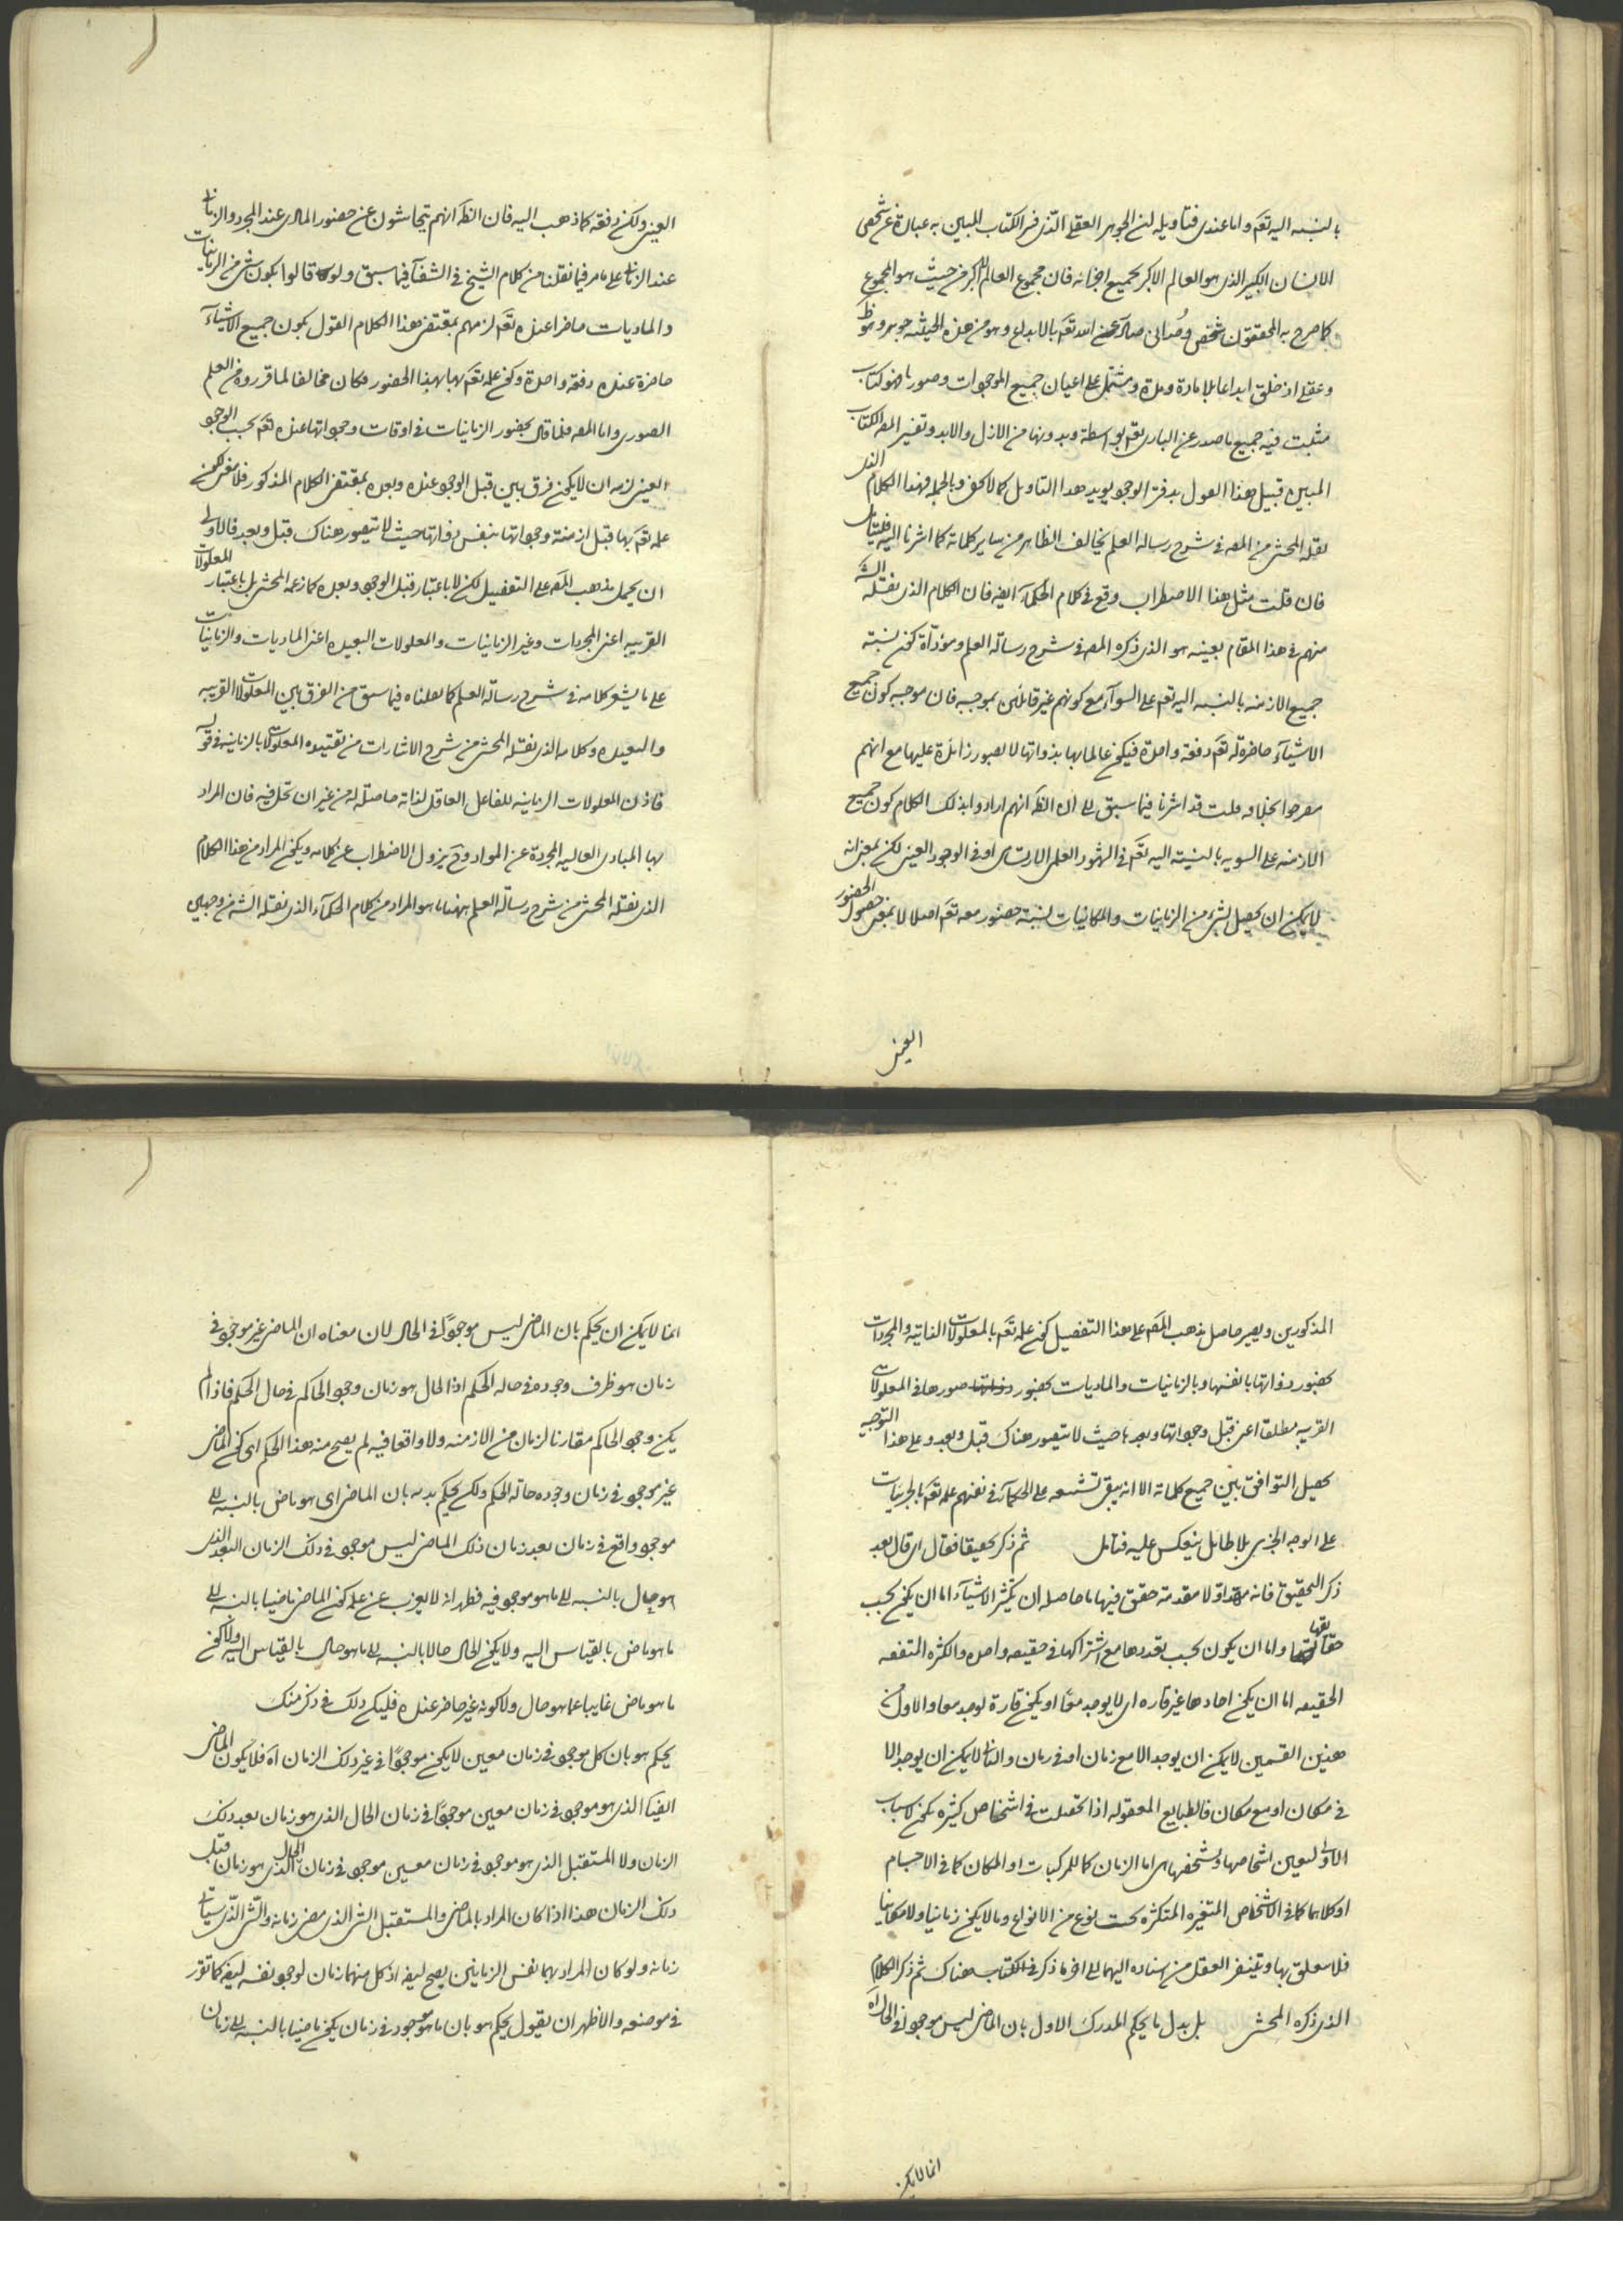 بالنسبه اليه تعم واما عندى فتاويله ان الجوهر العقلى الذى فسر الكتاب المبين به عبارة عن شخص
الانسان الكبير الذى هو العالم الاكبر بجميع اجزائه فان مجموع العالم الاكبر من حيث هو المجموع
كما صرح به المحققون شخص وحدانى صادر عن الله تعم بالابداع وهو من هذه الحيثيه جوهر
وعقلى اذ خلق ابداعا بلا مادة ومدة ومشتمل على اعيان جميع الموجودات وصورها فهو كتاب
مثبت فيه جميع ما صدر عن البارى تعم بواسطة وبدونها من الازل والابد وتفسير المص الكتاب
المبين قبيل هذا القول بدفتر الوجود يويد هذا التاويل كما لا يخفى وبالجملة فهذا الكلام الذى
نقله المحشى من المص فى شرح رساله العلم يخالف الظاهر من ساير كلماته كما اشرنا اليه فليتامل
فان قلت مثل هذا الاضطراب وقع فى كلام الحكماء ايضه فان الكلام الذى نقله الشه
منهم فى هذا المقام بعينه هو الذى ذكره المص فى شرح رسالة العلم ومؤداة كون نسبته
جميع الازمنه بالنسبه اليه تعم على السوآء مع كونهم غير قائلين بموجبه فان موجبه كون جميع
الاشيآء حاضرة له تعم دفعة واحدة فيكون عالما بها بذواتها لا بصور زائدة عليها مع انهم
صرحوا بخلافه قلت قد اشرنا فيما سبق الى ان الظم انهم ارادوا بذلك الكلام كون جميع
الازمنه على السويه بالنسبة اليه تعم فى الشهود العلمى الارتسامى او فى الوجود العينى لكن بمعنى انه
لا يمكن ان يحصل لشئ من الزمانيات والمكانيات نسبة حضور معه تعم اصلا لا بمعنى حصول الحضور
العينى
العينى ولكن دفعة كما ذهب اليه فان الظم انهم يتحاشون عن حضور المادى عند المجرد والزمانى
عند الزمانى على ما مر فيما نقلنا من كلام الشيخ فى الشفآء فيما سبق ولو قالوا بكون شئ من الزمانيات
والماديات حاضرا عنده تعم لزمهم بمقتضى هذا الكلام القول بكون جميع الاشيآء
حاضرة عنده دفعة واحدة وكون علمه تعم بها بهذا الحضور فكان مخالفا لما قرروه من العلم
الصورى واما المص فلما قال بحضور الزمانيات فى اوقات وجوداتها عنده تعم بحسب الوجود
العينى لزمه ان لا يكون فرق بين قبل الوجود عنده وبعده بمقتضى الكلام المذكور فلا معنى لكون
علمه تعم بها قبل ازمنة وجوداتها بنفس ذواتها حيث لا يتصور هناك قبل وبعد فالاولى
ان يحمل مذهب المص على التفصيل لكن لا باعتبار قبل الوجود وبعده كما زعمه المحشى بل باعتبار المعلولات
القريبه اعنى المجردات وغير الزمانيات والمعلولات البعيده اعنى الماديات والزمانيات
على ما يشعر كلامه فى شرح رسالة العلم كما نقلناه فيما سبق من الفرق بين المعلولات القريبه
والبعيده وكلامه الذى نقله المحشى من شرح الاشارات من تقييده المعلولات بالزمانيه فى قوله
فاذن المعلولات الزمانيه للفاعل العاقل لذاته حاصلة له من غير ان تحل فيه فان المراد
بها المبادى العاليه المجردة عن المواد وح يزول الاضطراب عن كلامه ويكون المراد من هذا الكلام
الذى نقله المحشى من شرح رسالة العلم ههنا ما هو المراد من كلام الحكمآء الذى نقله الشه من وجهى
المذكورين ويصير حاصل مذهب المص على هذا التفصيل كون علمه تعم بالمعلولات الذاتية والمجردات
بحضور ذواتها بانفسها وبالزمانيات والماديات بحضور صورها فى المعلولات
القريبه مطلقا اعنى قبل وجوداتها وبعدها حيث لا يتصور هناك قبل وبعد وعلى هذا التوجيه
يحصل التوافق بين جميع كلماته الا انه يبقى تشنيعه على الحكمآء فى نفيهم علمه تعم بالجزئيات
على الوجه الجزى بلا طائل ينعكس عليه فتامل ثم ذكر تحقيقا فقال اى قال بعد
ذكر التحقيق فانه مهد اولا مقدمة حقق فيها ما حاصله ان تكثر الاشيآء اما ان يكون بحسب
حقائقها واما ان يكون بحسب تعددها مع اشتراكها فى حقيقه واحده والكثره المتفقه
الحقيقه اما ان يكون احادها غير قاره اى لا يوجد معًا او يكون قارة توجد معا والاول من
هذين القسمين لا يمكن ان يوجد الا مع زمان او فى زمان والثانى لا يمكن ان يوجد الا
فى مكان او مع مكان فالطبايع المعقوله اذا تحصلت فى اشخاص كثيره يكون الاسباب
الاولى لتعين اشخاصها وتشخصها هى اما الزمان كما للحركات او المكان كما فى الاجسام
او كلاهما كما فى الاشخاص المتغيره المتكثره تحت نوع من الانواع وما لا يكون زمانيا ولا مكانيا
فلا يتعلق بها ويتنفر العقل من اسناده اليهما الى اخر ما ذكر فى الكتاب هناك ثم ذكر الكلام
الذى ذكره المحشى بل بدل ما يحكم المدرك الاول بان الماضى ليس موجودا فى الحال اه
انما لا يمكن
انما لا يمكن ان يحكم بان الماضى ليس موجودًا فى الحال لان معناه ان الماضى غير موجود فى
زمان هو ظرف وجوده فى حالة الحكم اذ الحال هو زمان وجود الحاكم فى حال الحكم فاذا لم
يكن وجود الحاكم مقارنا لزمان من الازمنه ولا واقعا فيه لم يصح منه هذا الحكم اى كون الماضى
غير موجود فى زمان وجوده حالة الحكم ولكن يحكم بدله بان الماضى اى هو ماض بالنسبه الى
موجود واقع فى زمان بعد زمان ذلك الماضى ليس موجود فى ذلك الزمان البعد الذى
هو حال بالنسبه الى ما هو موجود فيه فظهر انه لا يعزب عن علمه كون الماضى ماضيا بالنسبه الى
ما هو ماض بالقياس اليه ولا يكون الحال حالا بالنسبه الى ما هو حال بالقياس اليه ولا كون
ما هو ماض غايبا عما هو حال ولا كونه غير حاضر عنده فليكن ذلك فى ذكر منك
يحكم هو بان كل موجود فى زمان معين لا يكون موجودًا فى غير ذلك الزمان آه فلا يكون الماضى
ايضا الذى هو موجود فى زمان معين موجودًا فى زمان الحال الذى هو زمان بعد ذلك
الزمان ولا المستقبل الذى هو موجود فى زمان معين موجود فى زمان الحال الذى هو زمان قبل
ذلك الزمان هذا اذا كان المراد بالماضى والمستقبل الشئ الذى مضى زمانه والشئ الذى سيأتى
زمانه ولو كان المراد بهما نفس الزمانين يصح ايضه اذ كل منهما زمان لوجود نفسه ايضه كما تقرر
فى موضعه والاظهر ان يقول يحكم هو بان ما هو موجود فى زمان يكون ماضيا بالنسبه الى زمان